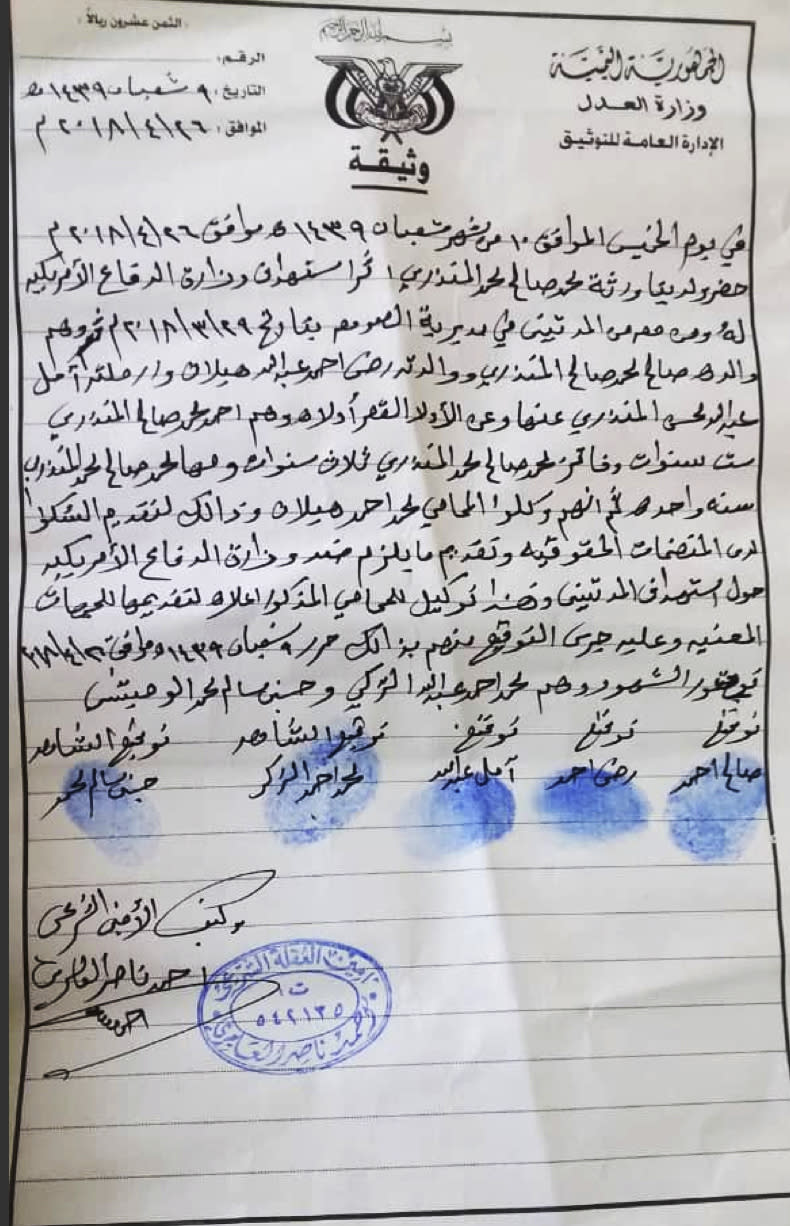 الثمن عشرون ريالاً
بسم الله الرحمن الرحيم
الجمهورية اليمنية
وزارة العدل
الإدارة العامة للتوثيق
الرقم:
التاريخ: ٩ شعبان ١٤٣٩ هـ
الموافق: ٢٠١٨/٤/٢٦ م
وثيقة
في يوم الخميس الموافق ١٠ من شهر شعبان ١٤٣٩ ه موافق ٢٠١٨/٤/٢٦ م
حضرو لدينا ورثة محمد صالح محمد المنذري اثر استهداف وزارة الدفاع الأمريكيه
لهُ ومن معه من المدنيين في مديرية الصومعه بتاريخ ٢٠١٨/٣/٢٩ م وهم
والده صالح محمد صالح المنذري ووالدته رضى احمد عبدالله هيلان وارملته آمل
عبدالله محسن المنذري عنها وعن الأولاد القصر أولاده وهم احمد محمد صالح المنذري
ست سنوات وفاتن محمد صالح محمد المنذري ثلاث سنوات ومها محمد صالح محمد المنذري
سنه واحده ثم انهم وكلوا المحامي محمد احمد هيلان وذالك لتقديم الشكوا
لدى المنضمات الحقوقيه وتقديم ما يلزم ضد وزارة الدفاع الأمريكيه
حول استهداف المدنيين وهذا توكيل للمحامي المذكور اعلاه لتقديمها للجهات
المعنيه وعليه جرى التوقيع منهم بذالك حرر ٩ شعبان ١٤٣٩ ه موافق
الشهود وهم محمد احمد عبدالله الزكي و حسين سالم محمد الوحيشي
توقيع توقيع توقيع توقيع الشاهد توقيع الشاهد
صالح احمد رضى احمد آمل عبدالله محمد احمد الزكي حسين سالم محمد
وكتب الأمين الشرعي
احمد ناصر العامري
أمين المحلة الشرعي
ت
٥٤٢١٣٥
احمد ناصر العامري